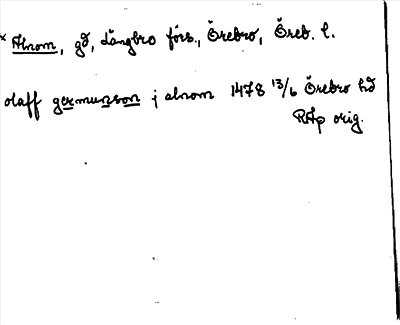 x Alnom, gd, Längbro förs., Örebro, Öreb. l.
olaff germunson j alnom 1478 13/6 Örebro hd
RAp orig.